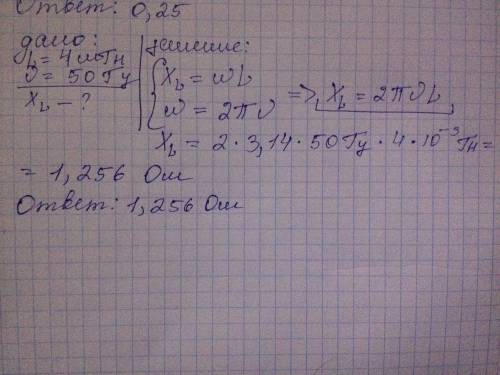 Ответ: 0,25
дано:
L = 4 мГн
υ = 50 Гц
X_L - ?
решение:
X_L = ωL
ω = 2πυ
=> X_L = 2πυL
X_L = 2·3,14·50 Гц·4·10⁻³ Гн =
= 1,256 Ом
Ответ: 1,256 Ом